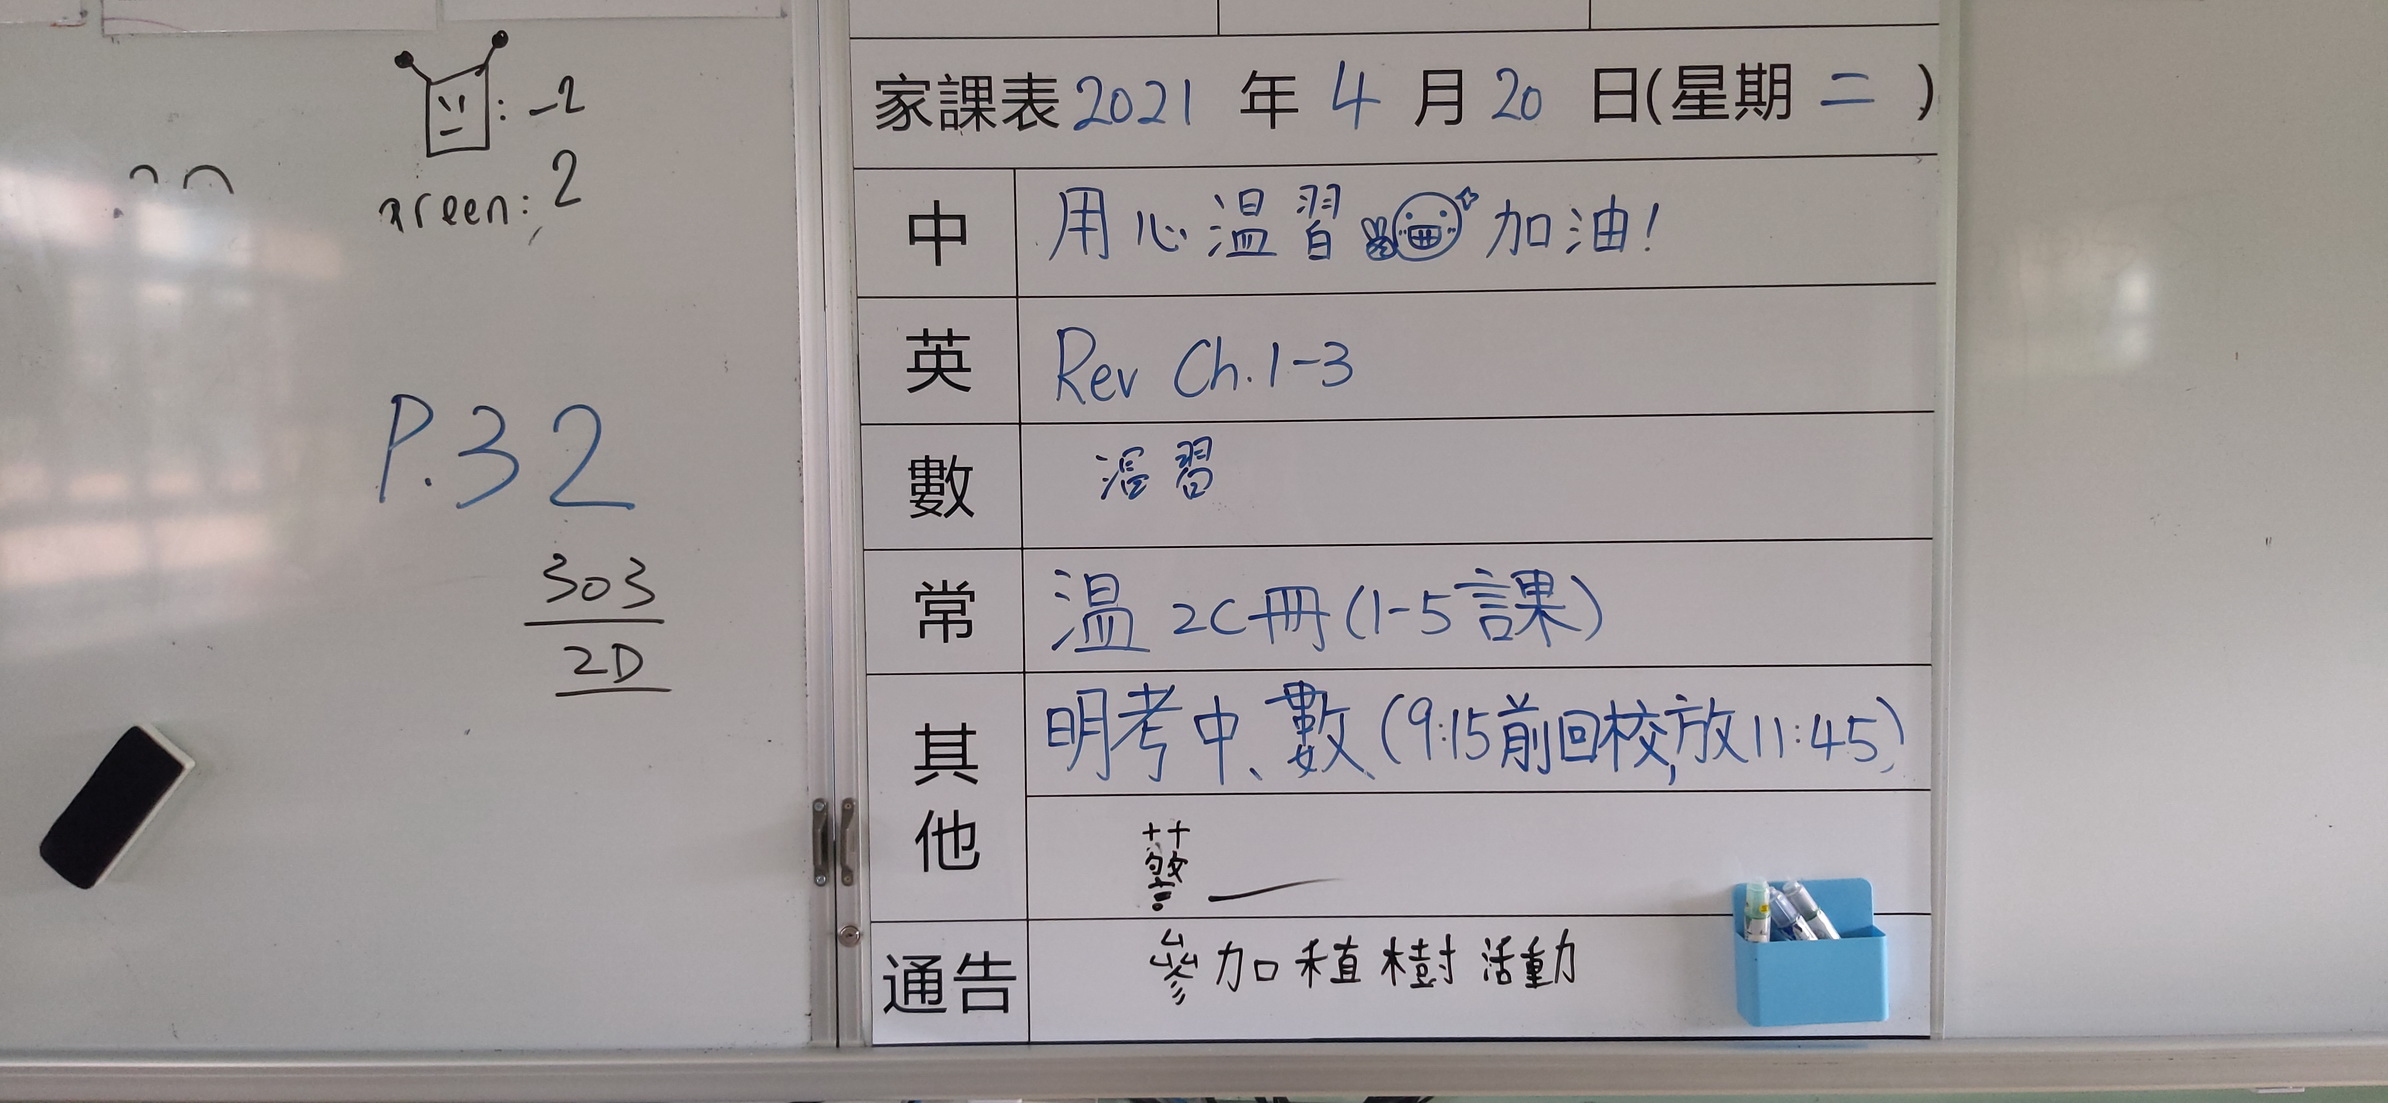 : -2
green: 2
P.32
303
2D
家課表 2021 年 4 月 20 日(星期 二 )
中 用心温習 加油!
英 Rev Ch.1-3
數 温習
常 温 2C冊(1-5課)
其他 明考中、數(9:15前回校,放11:45)
通告 參加植樹活動